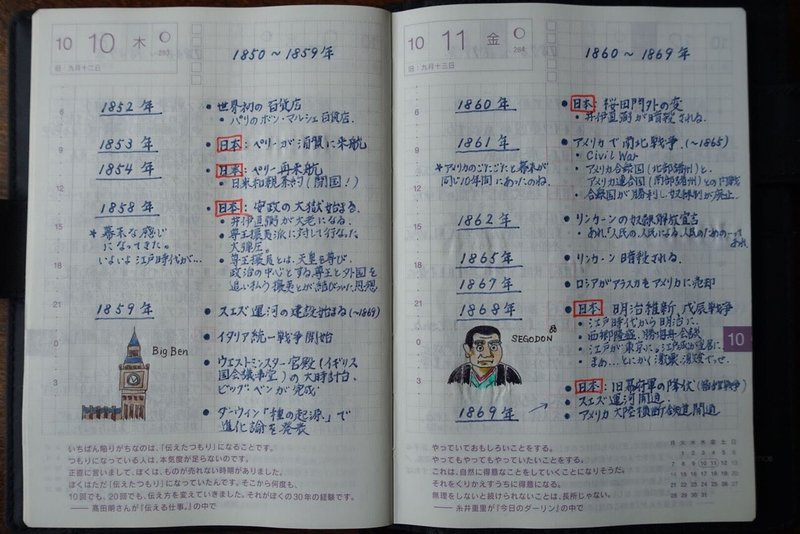 10 10 木
283
旧:九月十二日
1850～1859年
1852年
世界初の百貨店
・パリのボン・マルシェ百貨店.
1853年
日本:ペリーが浦賀に来航
1854年
日本:ペリー再来航
・日米和親条約(開国!)
1858年
日本:安政の大獄始まる.
・井伊直弼が大老になる.
・尊王攘夷派に対して行なった
大弾圧.
・尊王攘夷とは、天皇を尊び、
政治の中心とする尊王と外国を
追い払う攘夷とが結びついた思想
*幕末な感じ
になってきた。
いよいよ江戸時代が…
1859年
スエズ運河の建設始まる(～1869)
イタリア統一戦争開始
ウエストミンスター宮殿(イギリス
国会議事堂)の大時計台、
ビッグベンが完成
ダーウィン「種の起源」で
進化論を発表
Big Ben
いちばん陥りがちなのは、「伝えたつもり」になることです。
つもりになっている人は、本気度が足らないのです。
正直に言いまして、ぼくは、ものが売れない時期がありました。
ぼくはただ「伝えたつもり」になっていたんです。そこから何度も、
10回でも、20回でも、伝え方を変えていきました。それがぼくの30年の経験です。
──高田明さんが『伝える仕事。』の中で
10 11 金
284
旧:九月十三日
1860～1869年
1860年
日本:桜田門外の変
・井伊直弼が暗殺される.
1861年
アメリカで南北戦争.(～1865)
・Civil War
・アメリカ合衆国(北部諸州)と、
アメリカ連合国(南部諸州)との内戦
・合衆国が勝利し、奴隷制が廃止.
*アメリカのごたごたと幕末が
同じ10年間にあったのね.
1862年
リンカーンの奴隷解放宣言
・あれ「人民の、人民による、人民のための…」って
あれ
1865年
リンカーン暗殺される.
1867年
ロシアがアラスカをアメリカに売却
1868年
日本:明治維新、戊辰戦争
・江戸時代から明治に.
・西郷隆盛、勝海舟会談
・江戸が「東京」に。江戸城が皇居に.
・まぁ…とにかく激震、激変でっせ.
SEGODON
1869年
日本:旧幕府軍の降伏(箱館戦争)
スエズ運河開通.
アメリカ大陸横断鉄道開通
10
やっていておもしろいことをする。
やってもやってもやっていたいことをする。
これは、自然に得意なことをしていくことになりそうだ。
それをくりかえすうちに得意になる。
無理をしないと続けられないことは、長所じゃない。
──糸井重里が『今日のダーリン』の中で
月 火 水 木 金 土 日
1 2 3 4 5 6
7 8 9 10 11 12 13
14 15 16 17 18 19 20
21 22 23 24 25 26 27
28 29 30 31